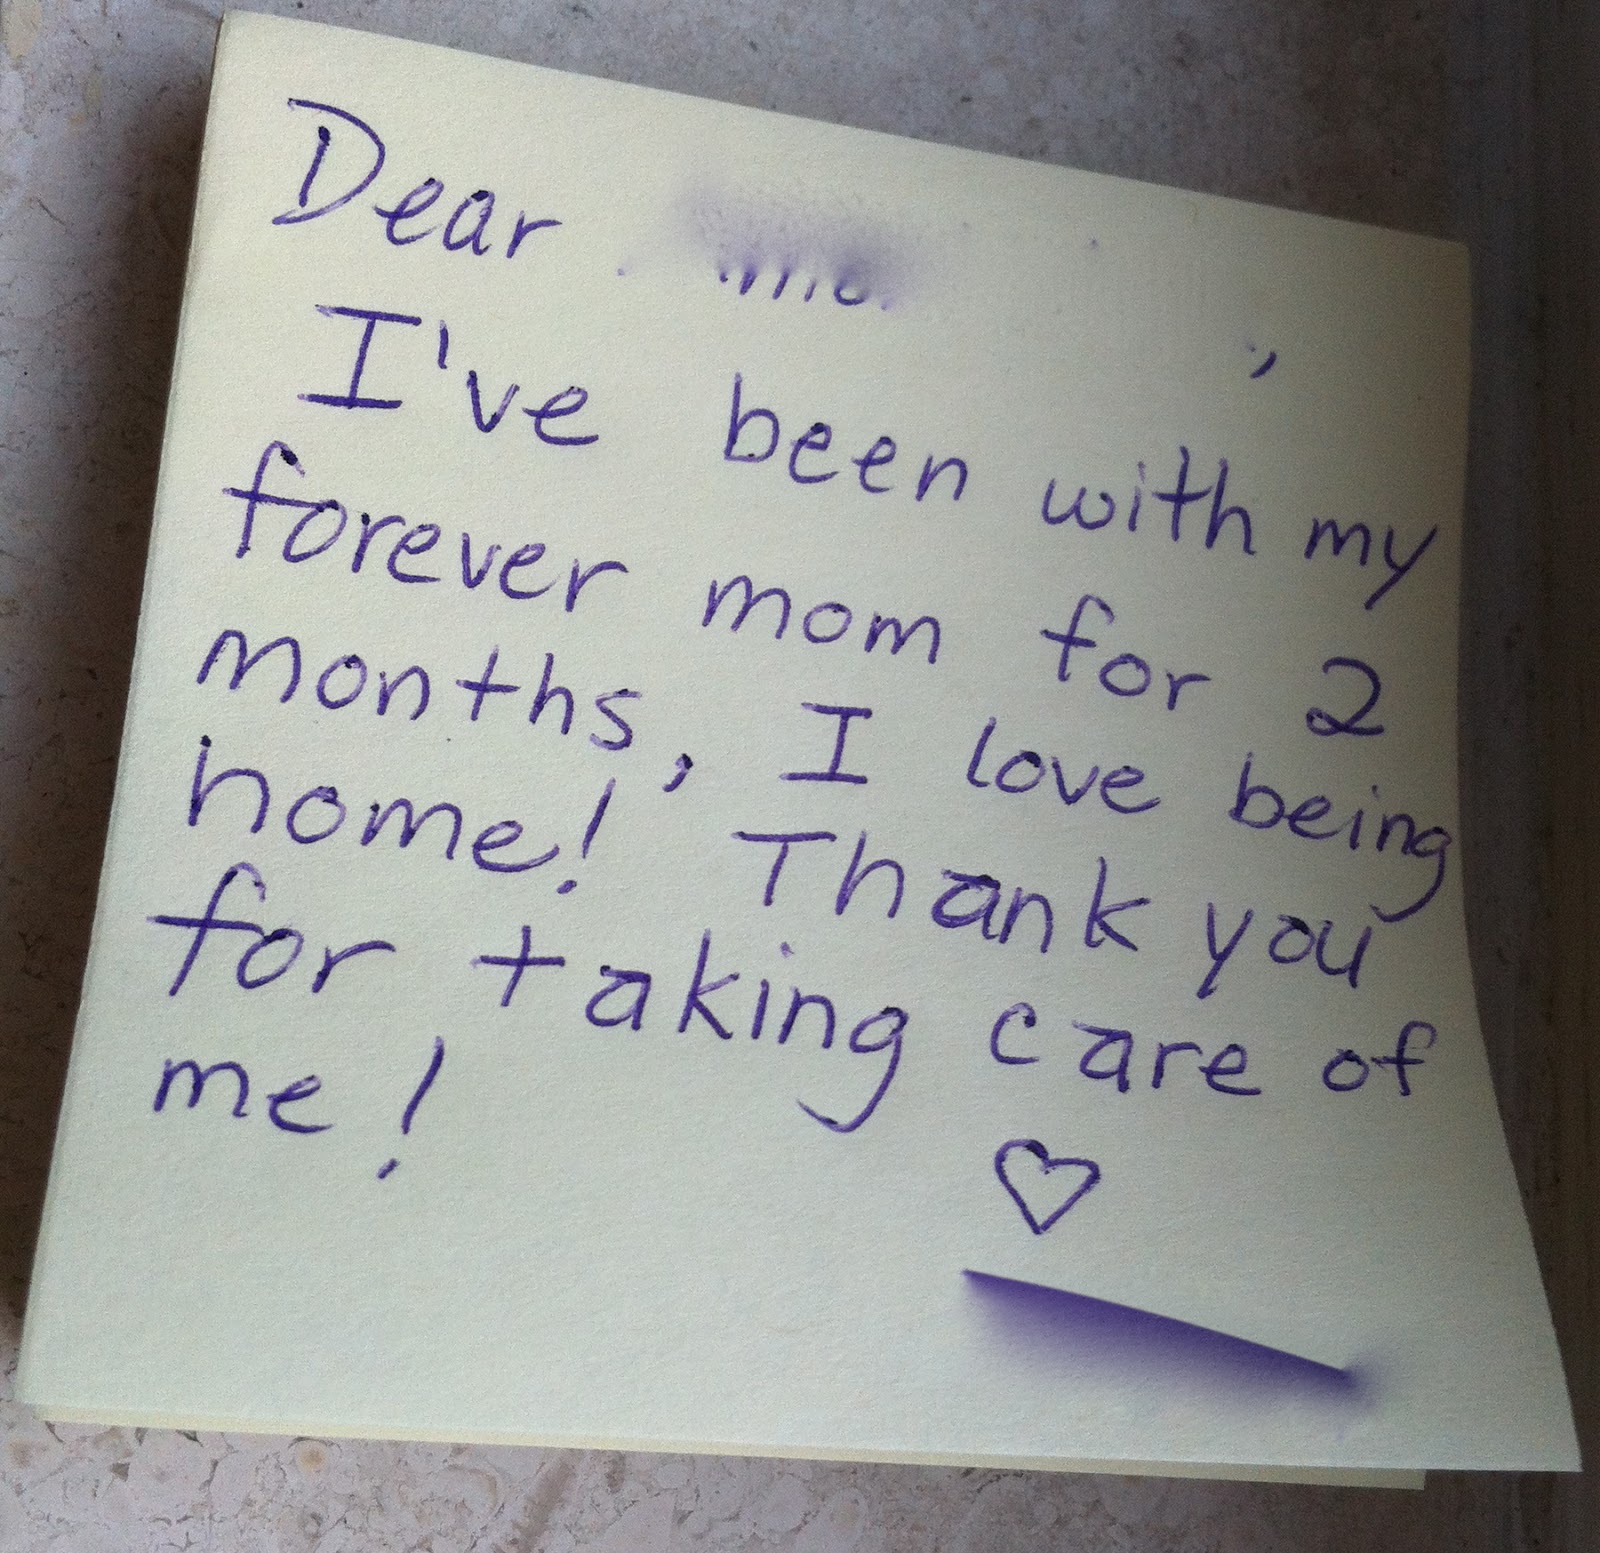 Dear ,
I've been with my
forever mom for 2
months, I love being
home! Thank you
for taking care of
me!
♡